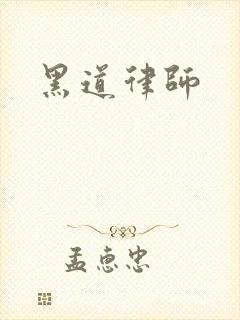 黑道律師
孟惠忠